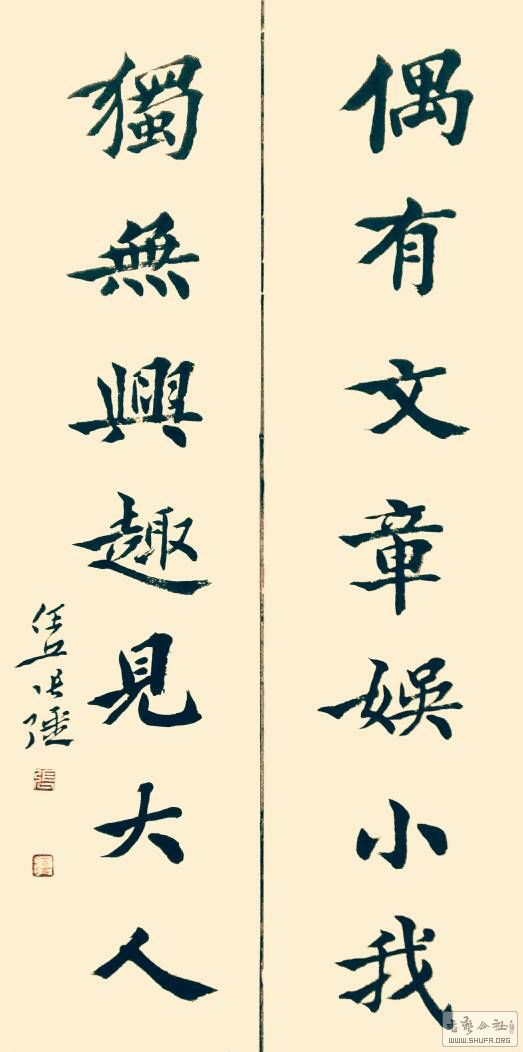 偶有文章娛小我
獨無興趣見大人
任丘張陲
書藝公社
WWW.SHUFA.ORG